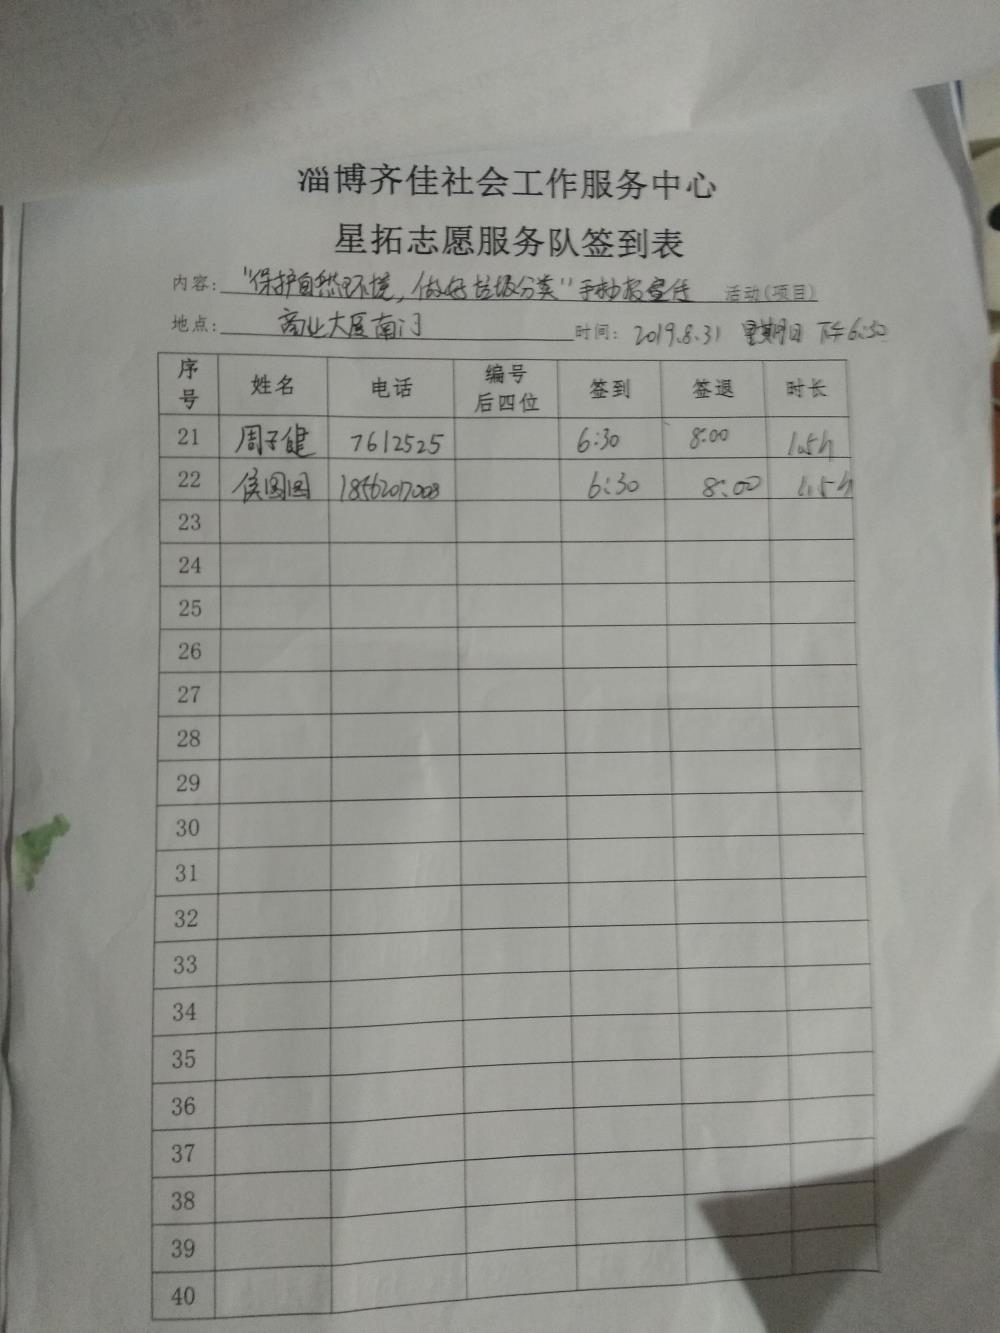 淄博齐佳社会工作服务中心
星拓志愿服务队签到表
内容: "保护自然环境,做好垃圾分类"手抄报宣传 活动(项目)
地点: 商业大厦南门 时间: 2019.8.31 星期日 下午6:30
序号 姓名 电话 编号后四位 签到 签退 时长
21 周子健 7612525 6:30 8:00 1.5h
22 侯圆圆 18562017003 6:30 8:00 1.5h
23
24
25
26
27
28
29
30
31
32
33
34
35
36
37
38
39
40